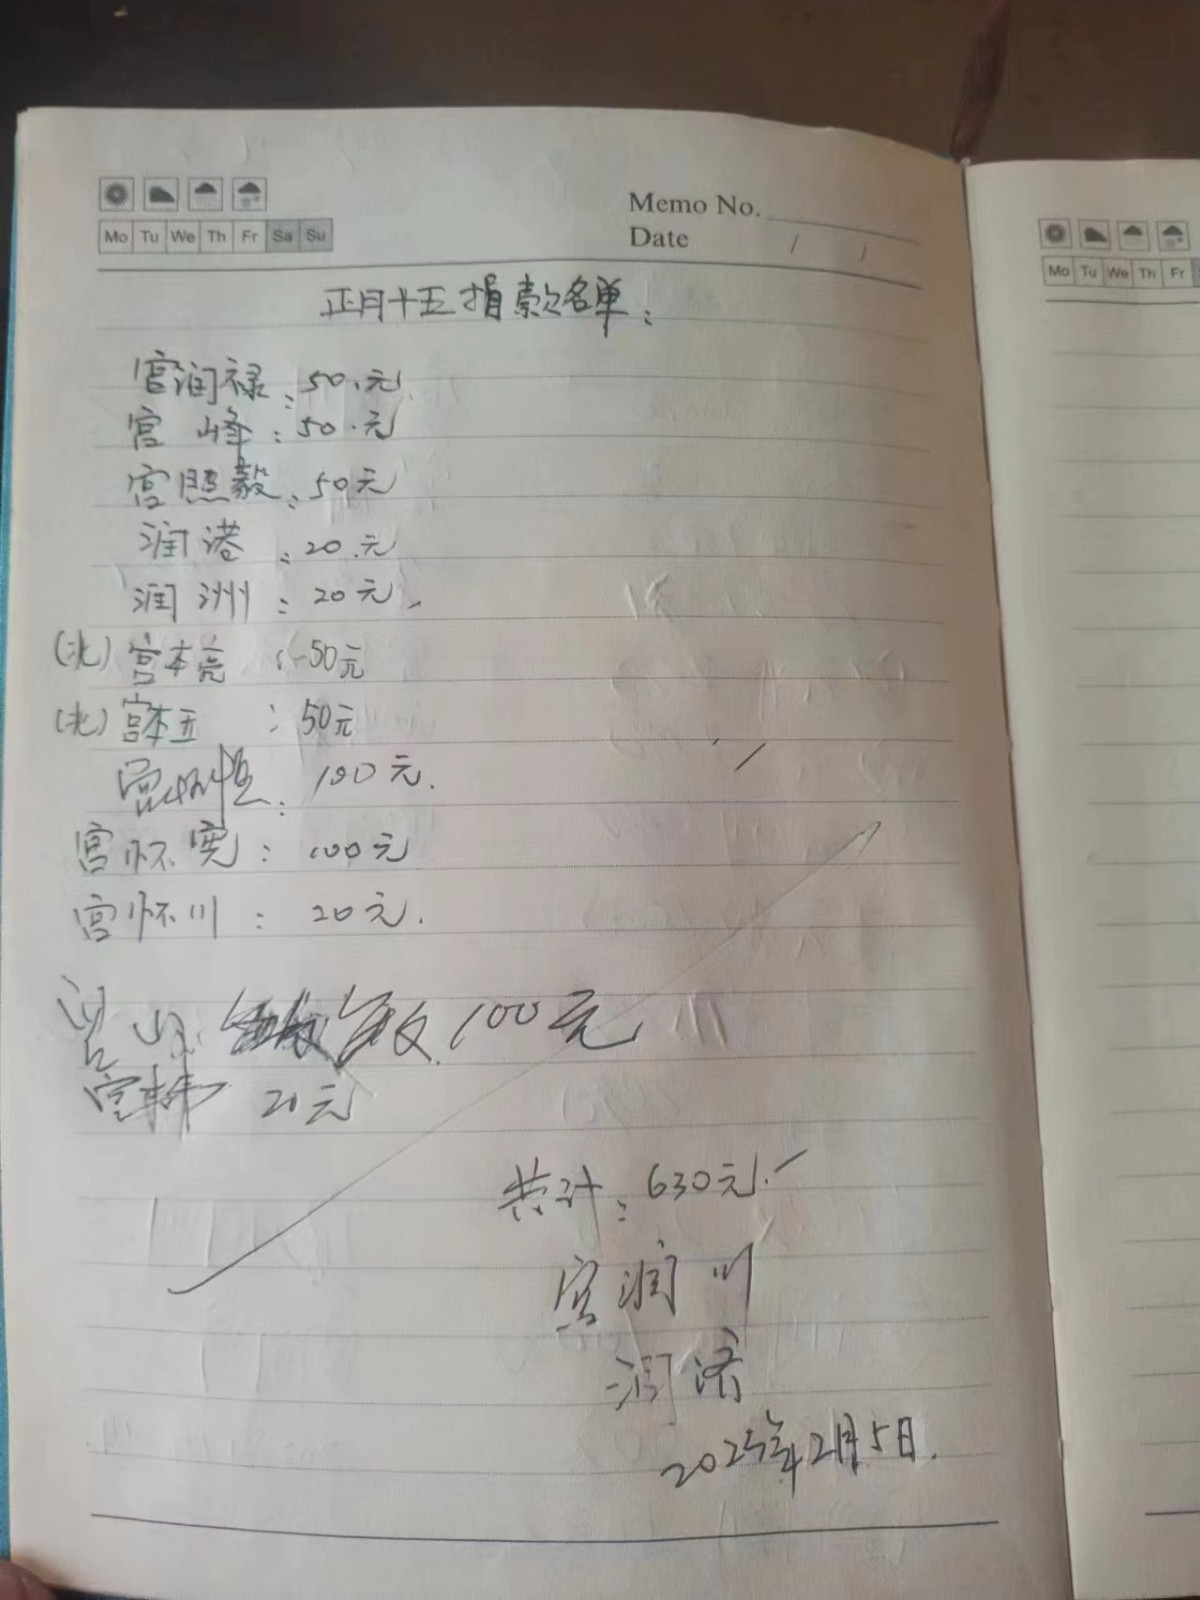 Memo No.
Mo Tu We Th Fr Sa Su
Date / /
Mo Tu We Th Fr
正月十五捐款名单:
宫润禄:50.元
宫 峰:50.元
宫照毅:50元
润港:20.元
润洲:20元
(北)宫本亮:50元
(北)宫本五:50元
宫 恒:100元.
宫怀宪:100元
宫怀川:20元.
100元
宫 20元
共计:630元.
宫润川
润济
2025年2月5日.